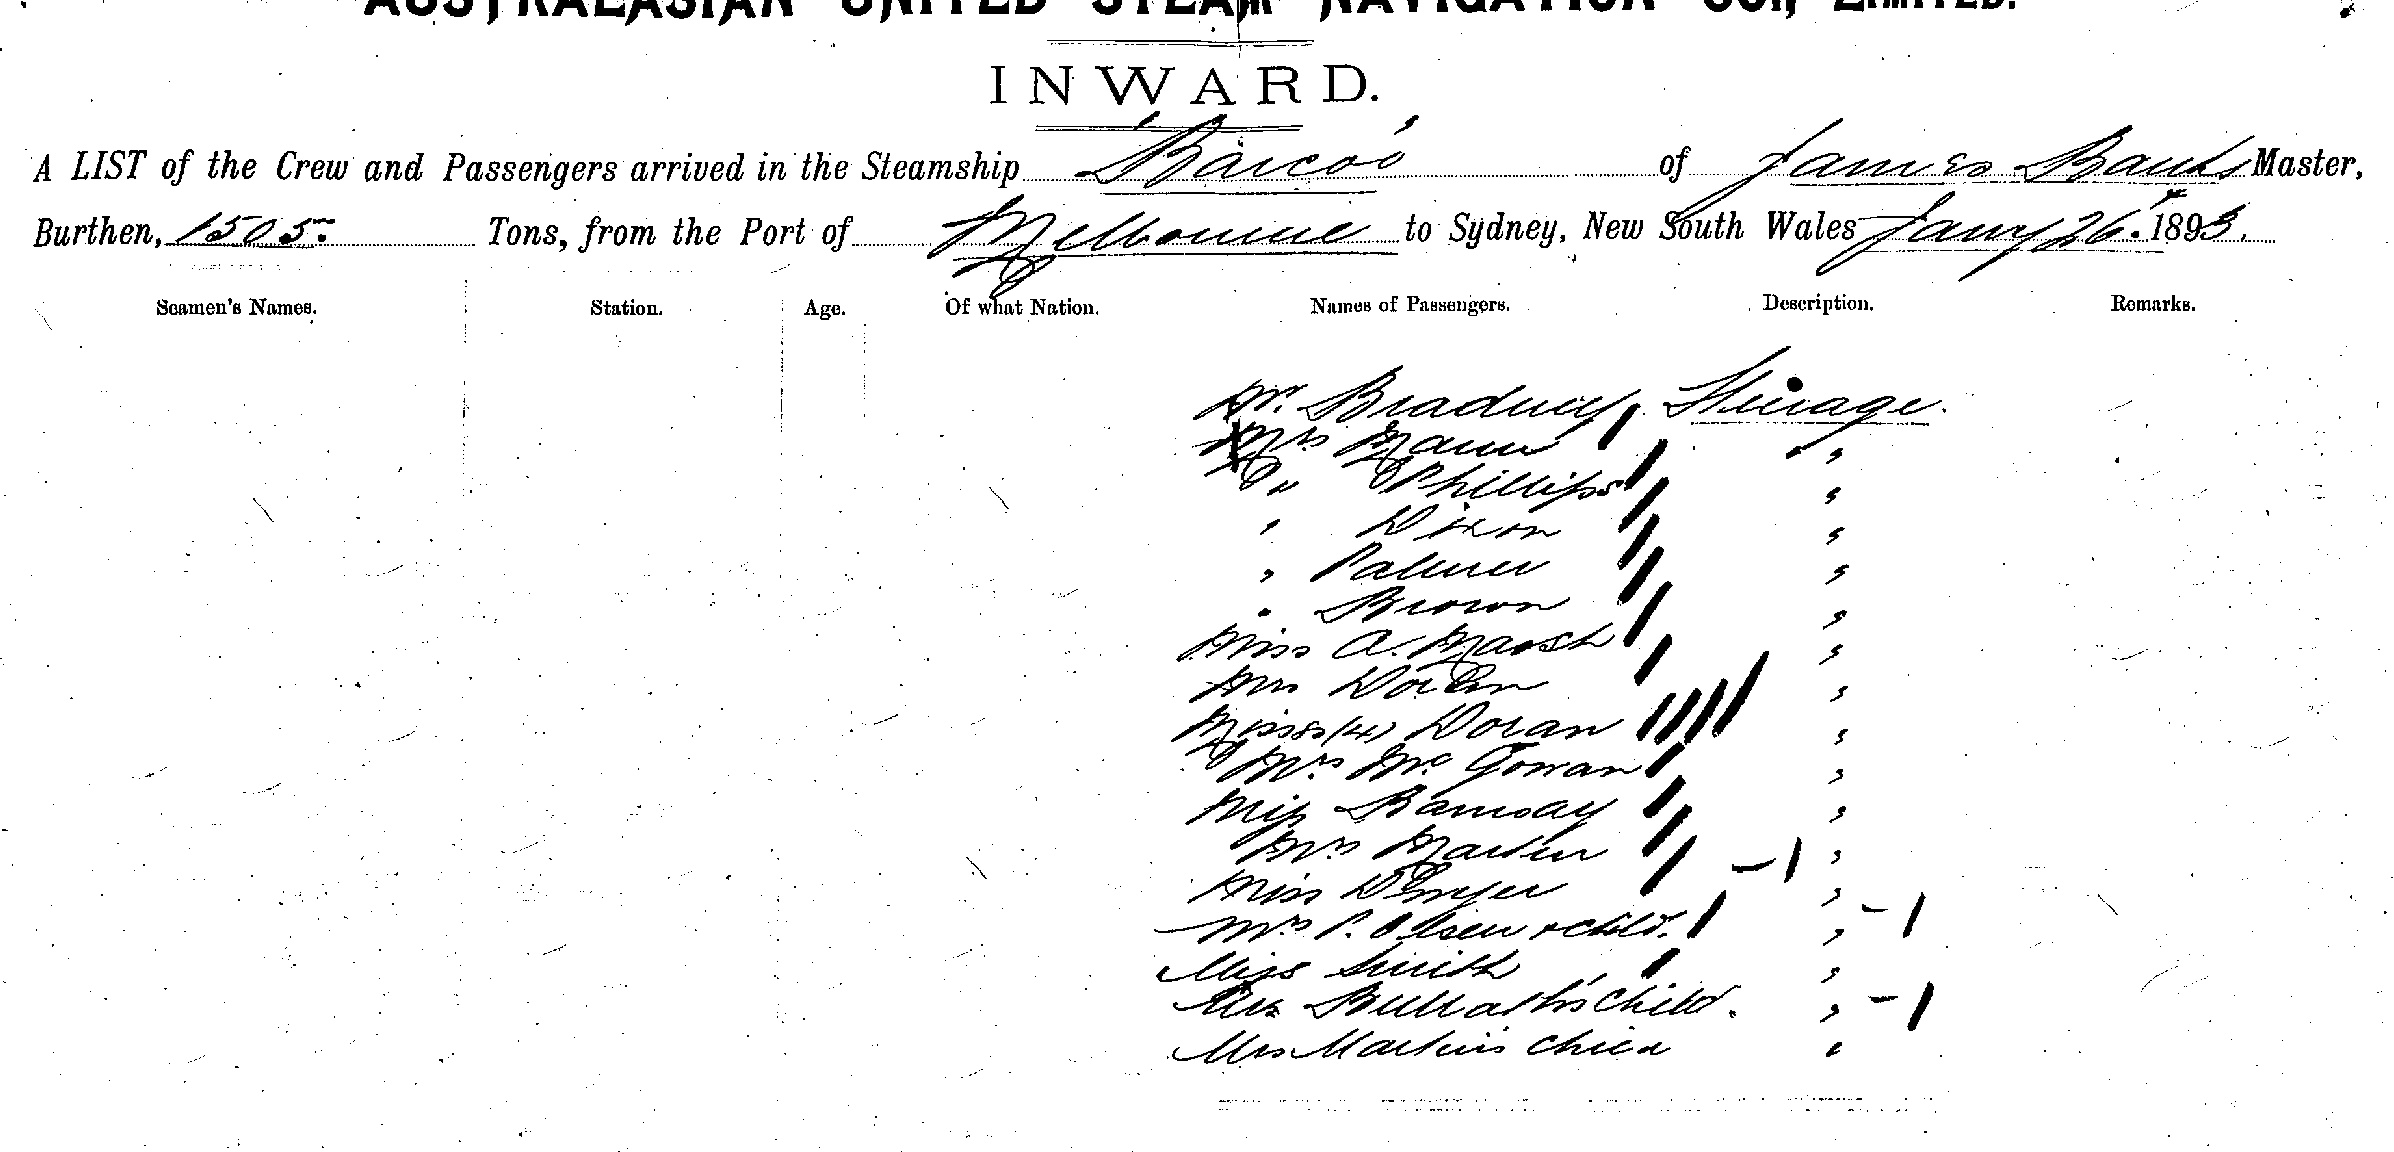 AUSTRALASIAN UNITED STEAM NAVIGATION CO., LIMITED.
INWARD.
A LIST of the Crew and Passengers arrived in the Steamship "Barcoo" of James Banks Master,
Burthen, 1505 Tons, from the Port of Melbourne to Sydney, New South Wales Jany 26th 1893.
Seamen's Names. Station. Age. Of what Nation. Names of Passengers. Description. Remarks.
Mr. Steerage.
Mrs Mann "
" Phillips "
" Dixon "
" Palmer "
" Brown "
Miss A. Marsh "
Mrs Doran "
Misses (4) Doran "
Mrs McGowan "
Miss Ramsay "
Mrs Martin - 1 "
Miss "
Mrs P. Olsen + child. " - 1
Miss Smith "
Mrs child. " - 1
Mrs Martin's child "